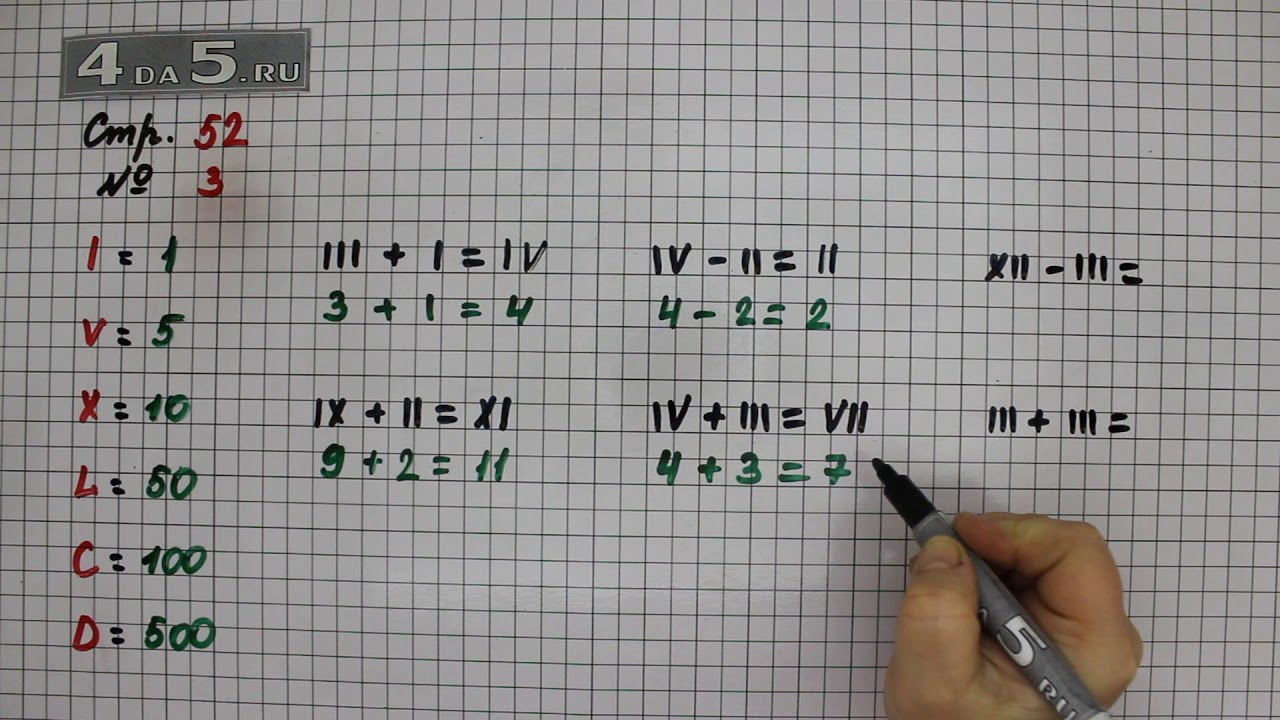 4DA5.RU
Стр. 52
№ 3
I = 1
V = 5
X = 10
L = 50
C = 100
D = 500
III + I = IV
3 + 1 = 4
IX + II = XI
9 + 2 = 11
IV - II = II
4 - 2 = 2
IV + III = VII
4 + 3 = 7
XII - III =
III + III =
5.RU